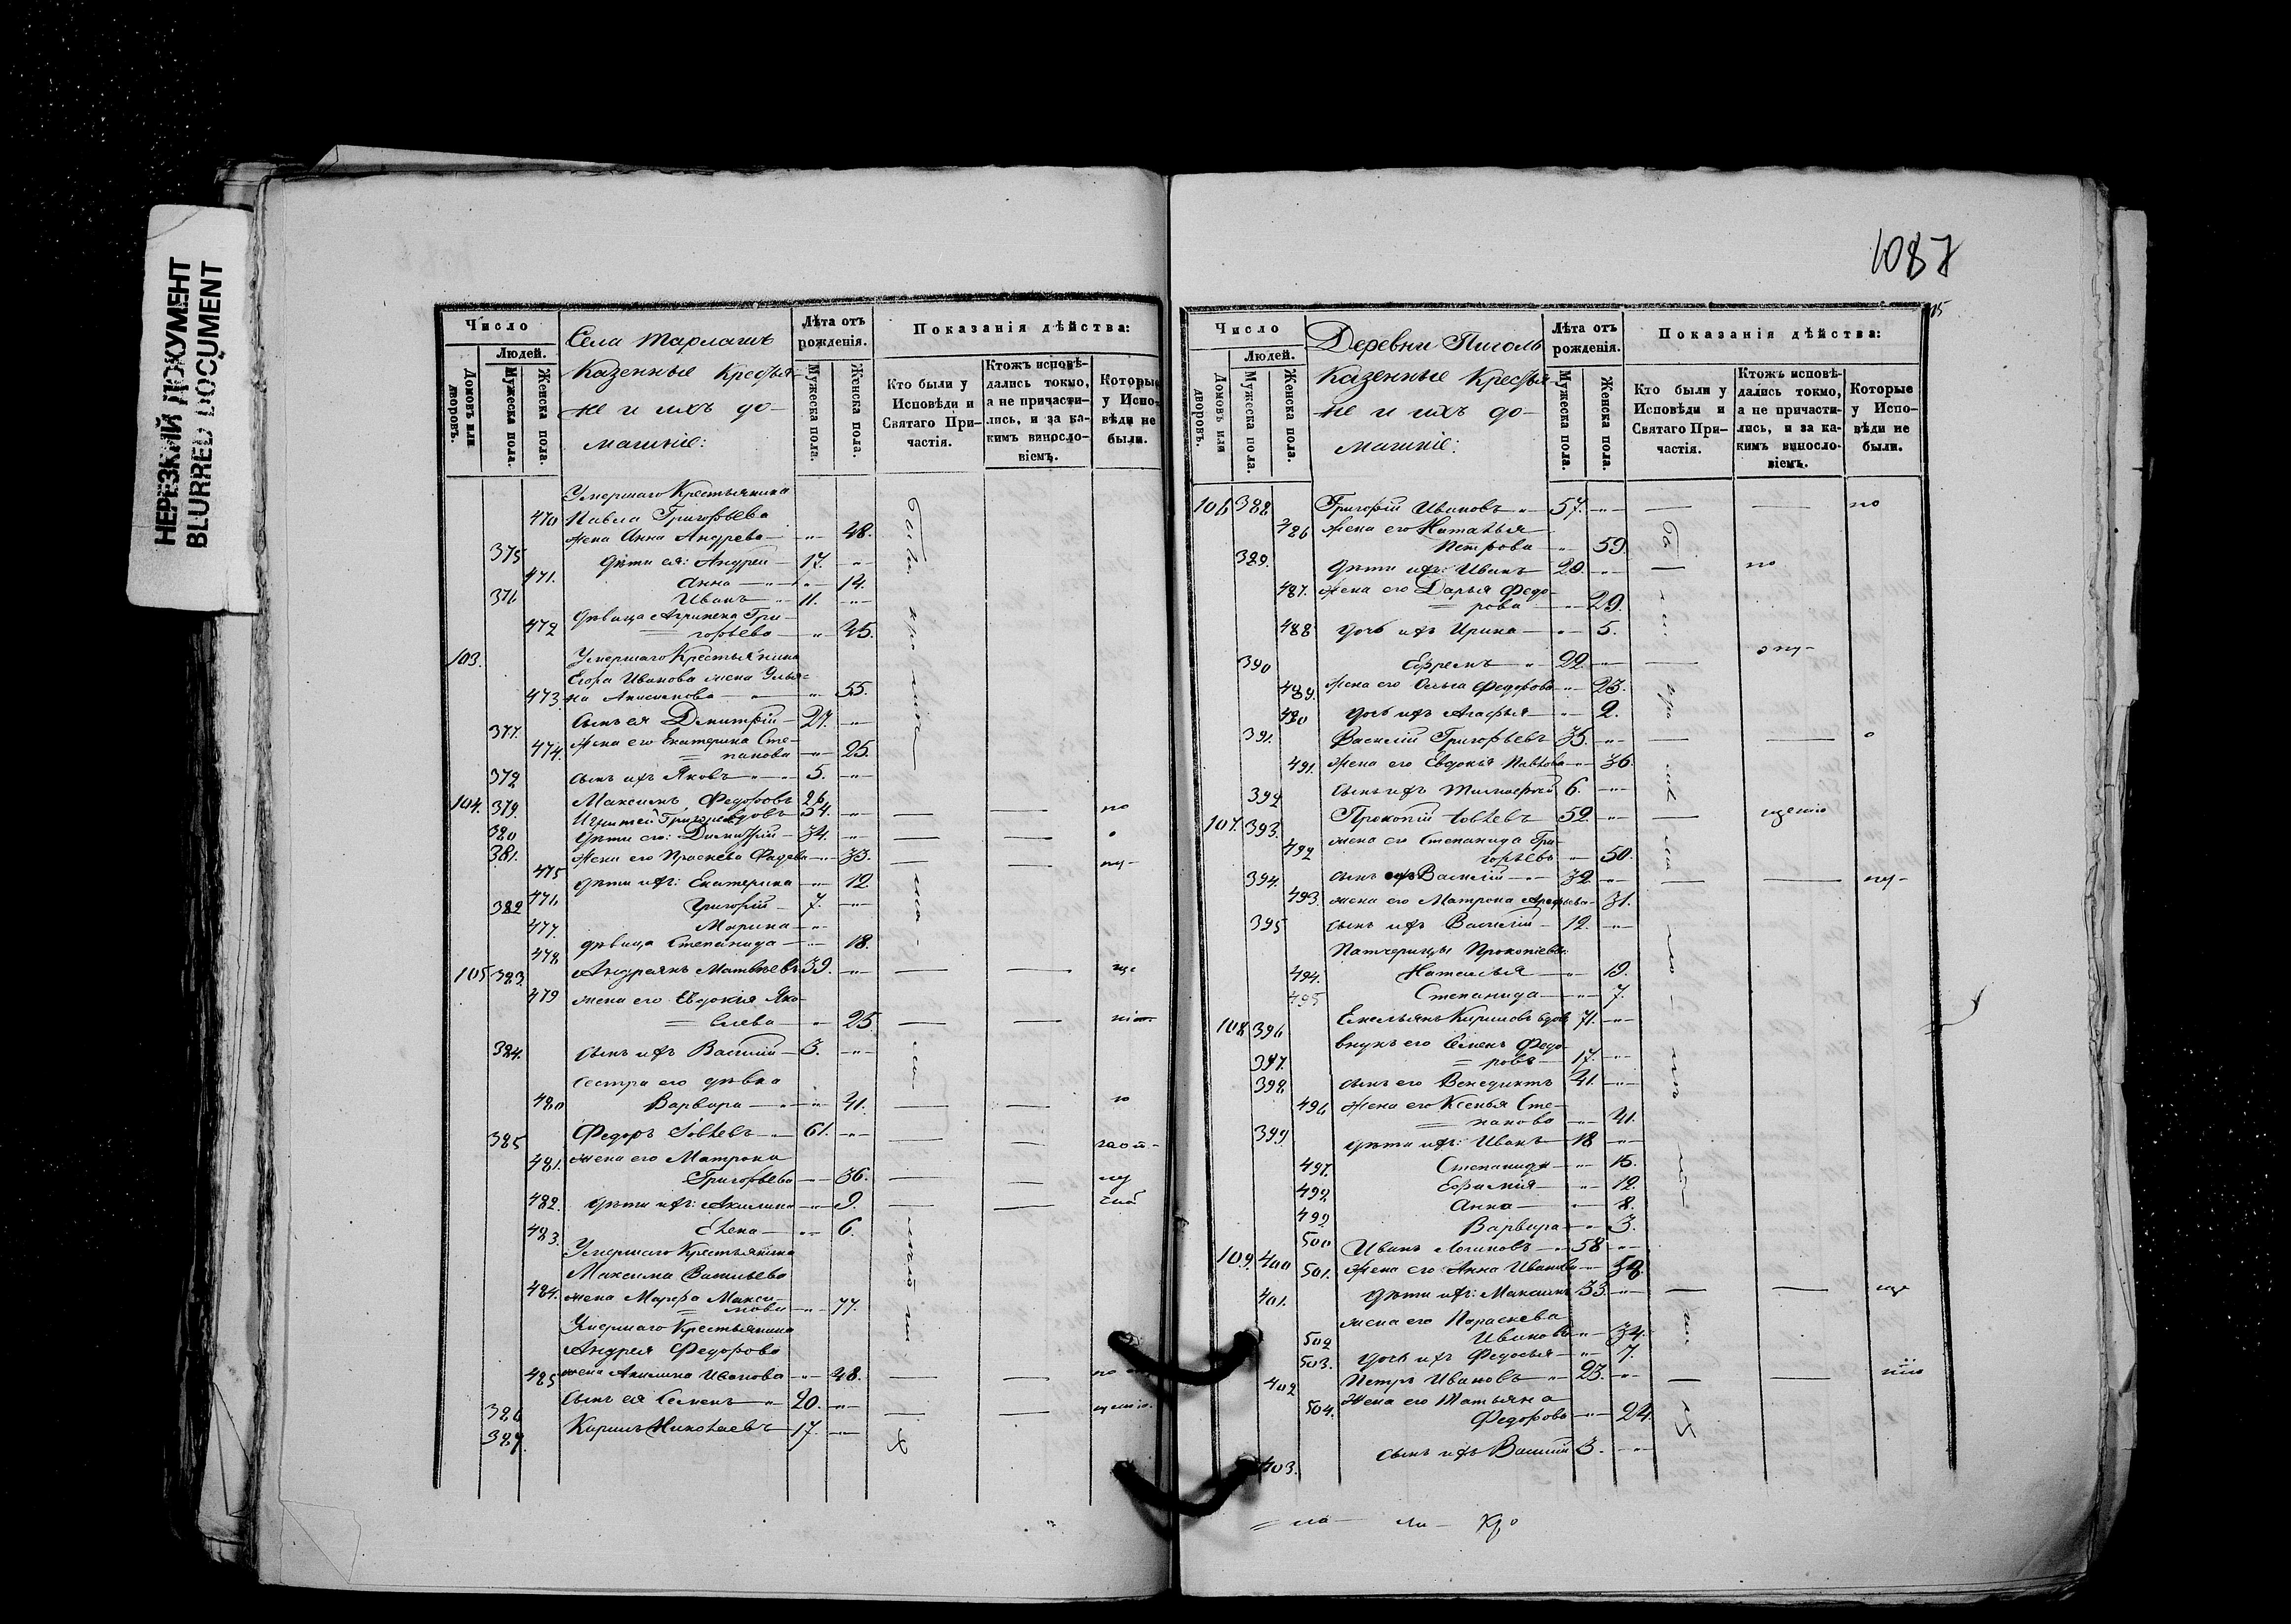 НЕРЕЗКИЙ ДОКУМЕНТ
BLURRED DOCUMENT
Число
Людей.
Домовъ или дворовъ.
Мужеска пола.
Женска пола.
Села
Казенные Кресья-
не и ихъ до-
машніе:
Лѣта отъ рожденія.
Мужеска пола.
Женска пола.
Показанія дѣйства:
Кто были у Исповѣди и Святаго При-частія.
Ктожъ исповѣ-дались токмо, а не причасти-лись, и за ка-кимъ винсло-віемъ.
Которые у Испо-вѣди не были.
Умершаго Крестьянина
470 Павла Григорьева
жена Анна Андрева 48.
375 дѣти ея: Андрей 17.
471. Анна 14.
376 Иванъ 11.
472 дѣвица Агрипена Гри-
горьева 45.
103. Умершаго Крестьянина
Егора Иванова жена Улья-
473. на 55.
377. Сынъ ея Димитрій 27.
474. Жена его Екатерина Сте-
панова 25.
378 сынъ ихъ Яковъ 5.
104. 379. Максимъ Федоровъ
380 дѣти его: Димитрій 34.
381. 475 жена его 33.
476 дѣти ихъ: Екатерина 12
382 Григорій 7.
477. Марина
478 дѣвица Степанида 18.
105 383. Андреянъ Матвѣевъ 39.
479 жена его Евдокія Яко-
влева 25
384. сынъ ихъ Василій 3.
сестра его дѣвка
480 Варвара 41.
385 Федоръ 61.
481. жена его Матрона
Григорьева 36.
482. дѣти ихъ: Акилина 9.
483. Елена 6.
Умершаго Крестьянина
Максима Васильева
484. жена Марфа Макси-
мова 77.
Умершаго Крестьянина
Андрея Федорова
485 жена Акилина Иванова 48.
386 Сынъ ея Семенъ 20.
387. Кирилъ Николаевъ 17.
1087
Число
Людей.
Домовъ или дворовъ.
Мужеска пола.
Женска пола.
Деревни
Казенные Кресья-
не и ихъ до-
машніе:
Лѣта отъ рожденія.
Мужеска пола.
Женска пола.
Показанія дѣйства:
Кто были у Исповѣди и Святаго При-частія.
Ктожъ исповѣ-дались токмо, а не причасти-лись, и за ка-кимъ винсло-віемъ.
Которые у Испо-вѣди не были.
106 388 Григорій Ивановъ 57.
486 Жена его Наталья
Петрова 59.
389. дѣти ихъ: Иванъ 29.
487. Жена его Дарья Федо-
рова 29.
488 дочь ихъ Ирина 5.
390 Ефремъ 22.
489. Жена его Ольга Федорова 23.
490 дочь ихъ Агафья 2.
391. Василій Григорьевъ 35.
491. Жена его Евдокія Павлова 36.
392 сынъ ихъ Тимофей 6.
107. 393. Прокопій 52.
492 жена его Степанида Гри-
горьева 50.
394. сынъ Василій 32.
493. жена его Матрона 31.
395 сынъ ихъ Василій 12.
Патчерицы Прокопіевы:
494. Наталья 19.
495 Степанида 7.
108 396 Емельянъ Кириловъ вдовъ 71.
397. внукъ его Семенъ Федо-
ровъ 17.
398 сынъ его Венедиктъ 41.
496 Жена его Ксенья Сте-
панова 41.
399 дѣти ихъ: Иванъ 18
497. Степанида 15.
498 Ефимія 12.
499 Анна 8.
500 Варвара 3.
109. 400 Иванъ Логиновъ 58
501. Жена его Анна Иванова
401. дѣти ихъ: Максимъ 33.
жена его Параскева
502 Иванова 34.
503. дочь ихъ Федосья 7.
402 Петръ Ивановъ 23.
504. Жена его Татьяна
Федорова 24.
403. сынъ ихъ Василій 3.